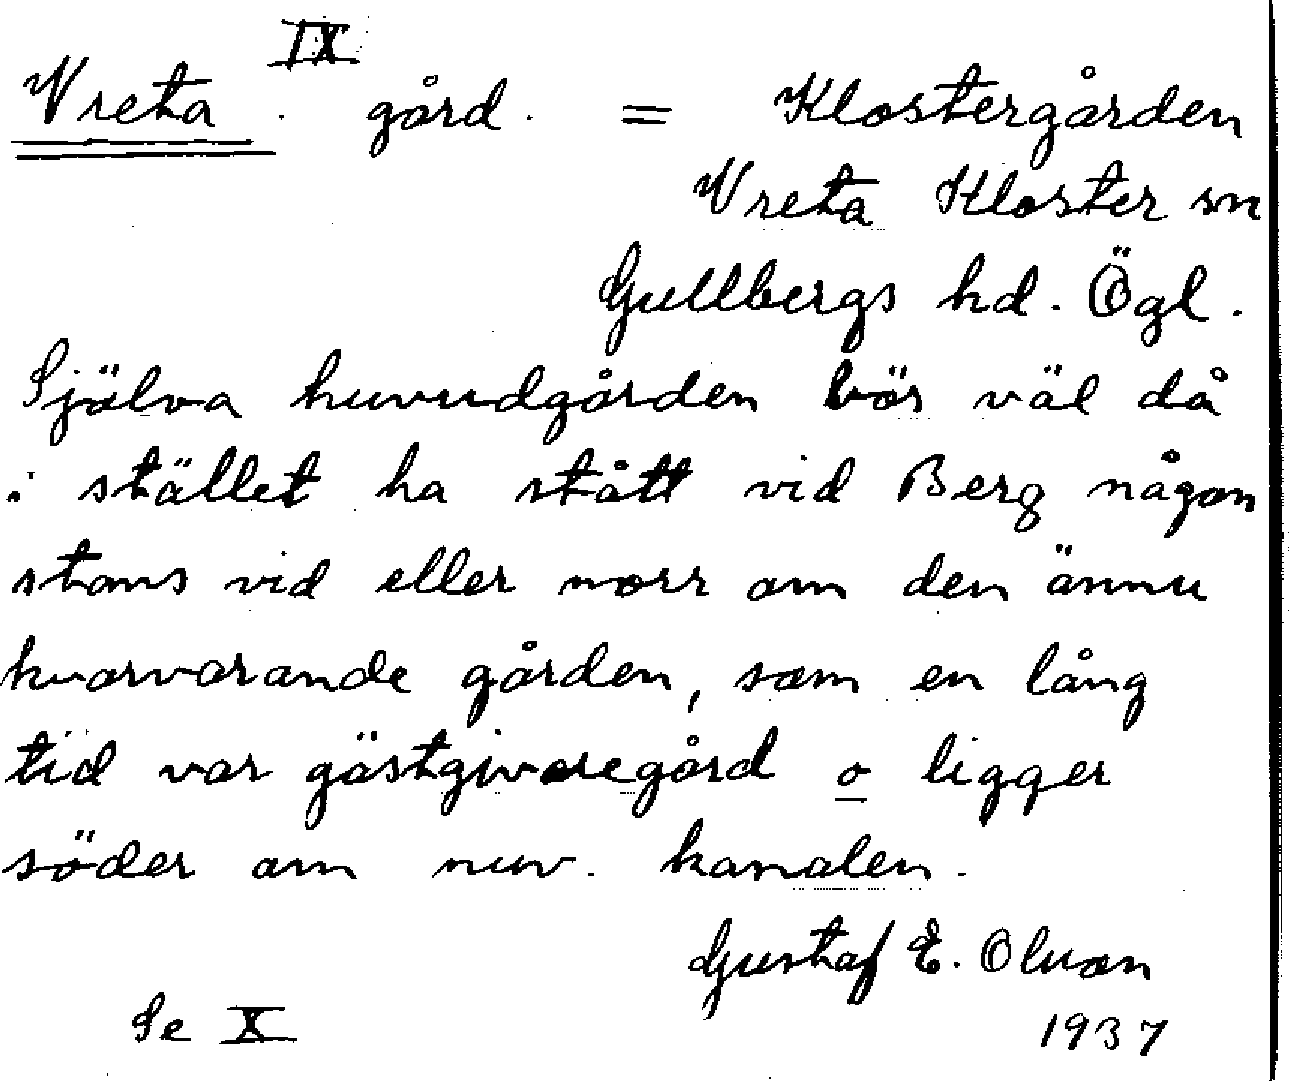 IX
Vreta . gård. = Klostergården
Vreta Kloster sn
Gullbergs hd. Ögl.
Själva huvudgården bör väl då
i stället ha stått vid Berg någon
stans vid eller norr om den ännu
kvarvarande gården, som en lång
tid var gästgivaregård o ligger
söder om nuv. kanalen.
Gustaf E. Olsson
Se X 1937